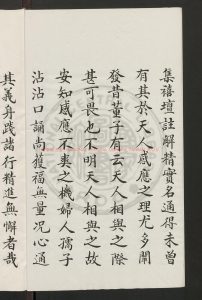 集禧壇註解精實名通得未曾
有其於天人感應之理尤多闡
發昔董子有云天人相與之際
甚可畏也不明天人相與之故
安知感應不爽之機婦人孺子
沾沾口誦尚獲福無量況心通
其義身踐諸行精進無懈者哉